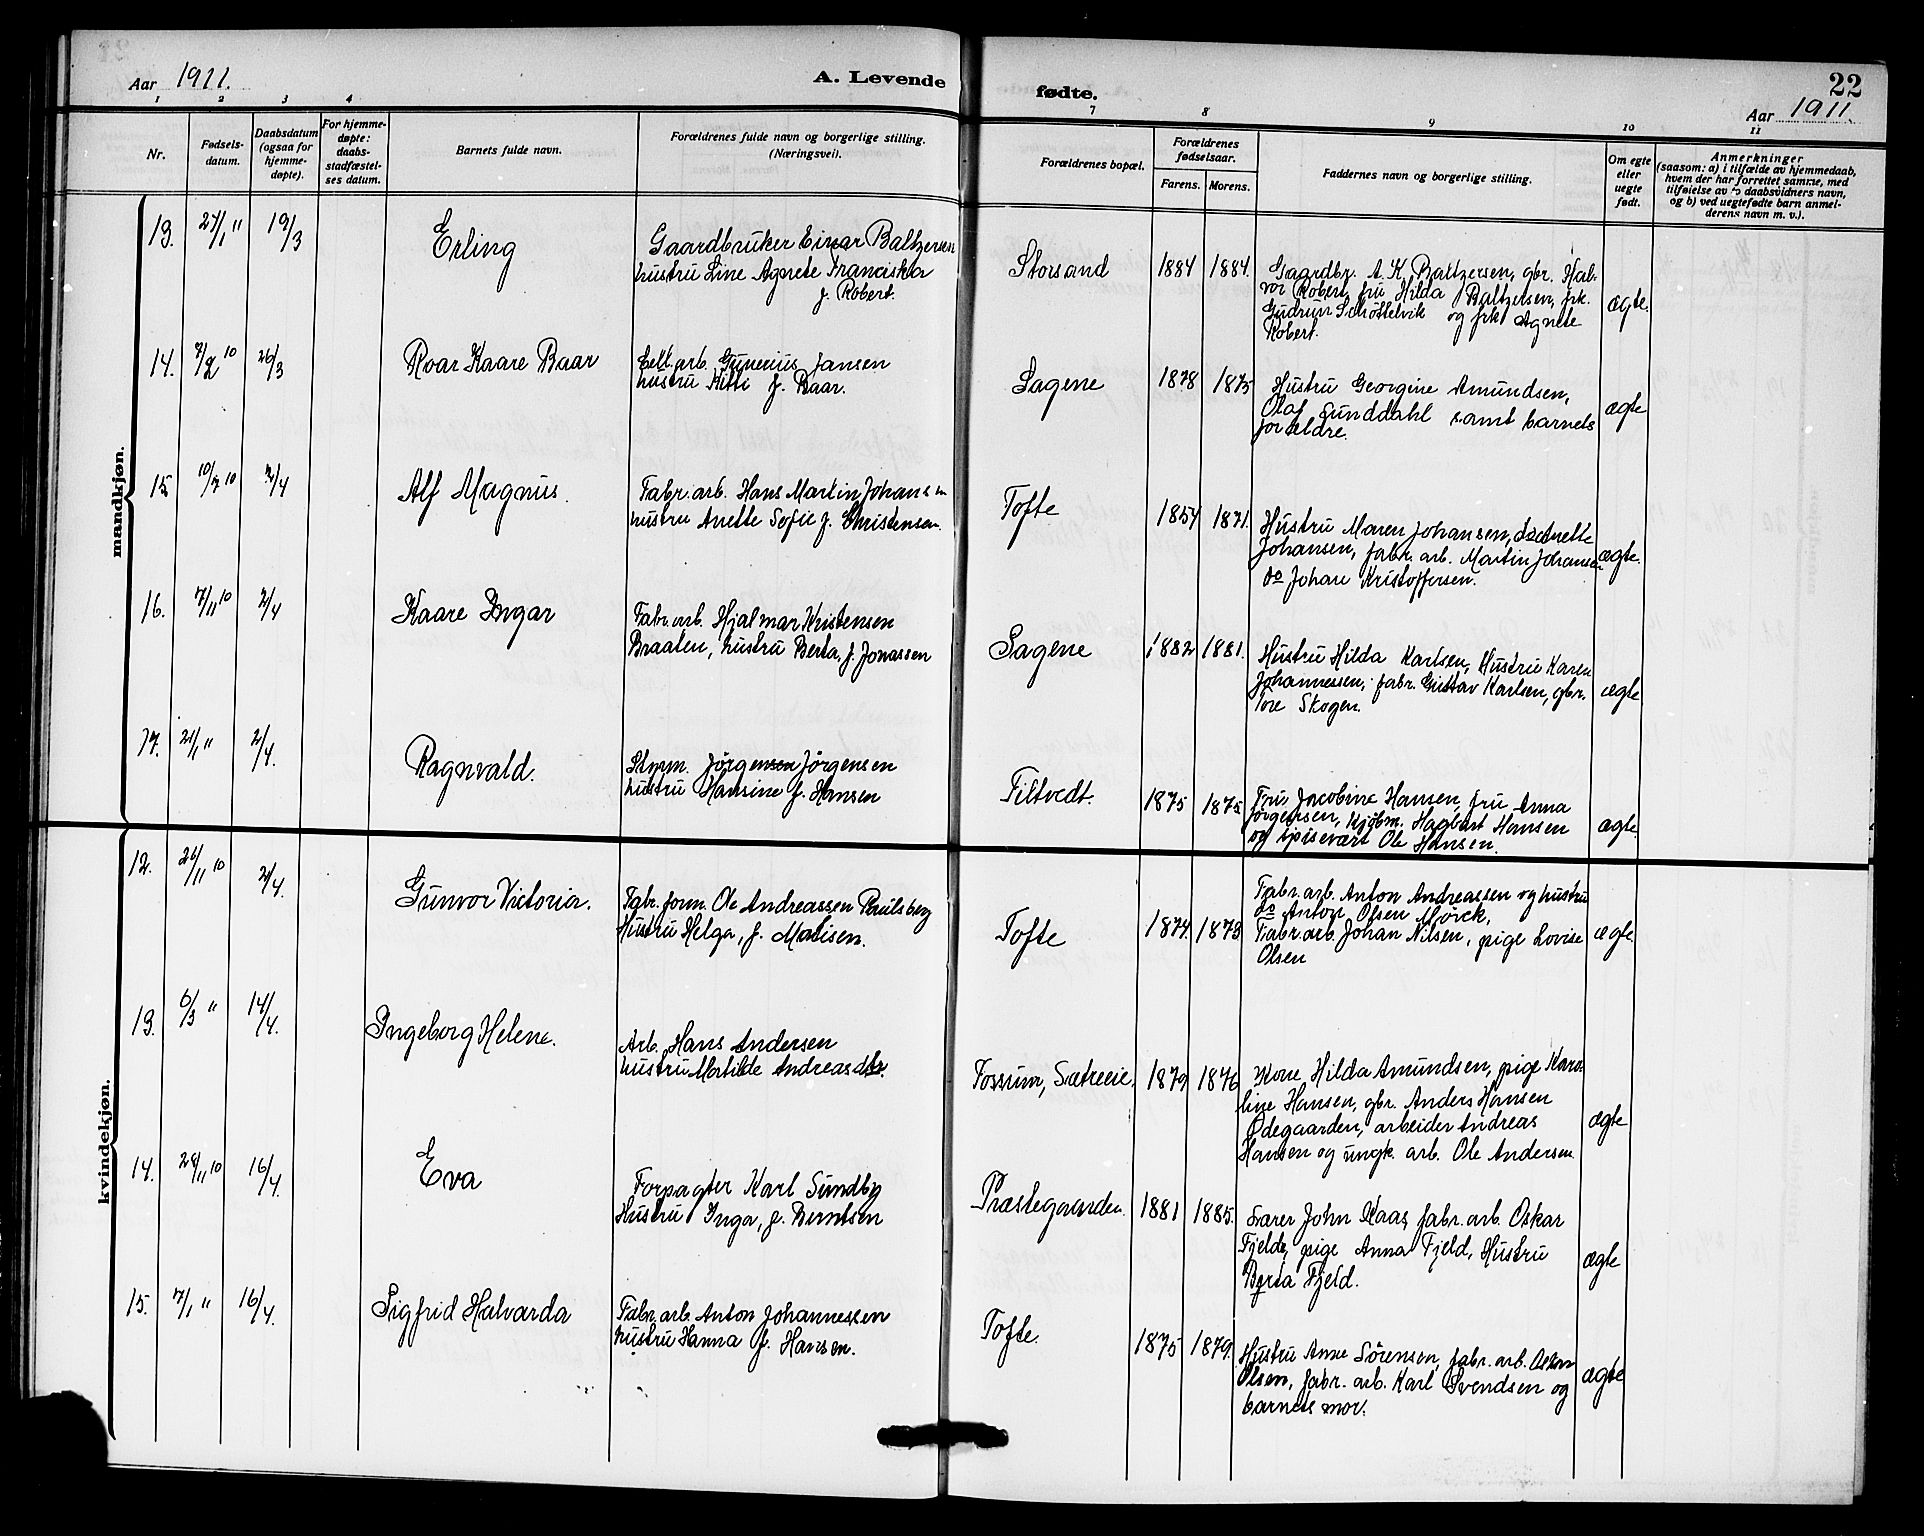 Aar 1911.
A. Levende
1 2 3 4
Nr.
Fødsels-
datum.
Daabsdatum
(ogsaa for
hjemme-
døpte).
For hjemme-
døpte:
daabs-
stadfæstel-
ses datum.
Barnets fulde navn.
Forældrenes fulde navn og borgerlige stilling.
(Næringsvei).
mandkjøn.
13. 27/1 " 19/3 Erling
Gaardbruker Einar Baltzersen
hustru Line Agnete Franciska
f. Robert.
14. 7/2 10 26/3 Roar Kaare Baar
Cell.arb. Gunerius Jansen
hustru Kitti f. Baar.
15. 10/7 10 2/4 Alf Magnus.
Fabr. arb. Hans Martin Johansen
hustru Anette Sofie f. Christensen.
16. 7/11 10 2/4 Kaare Ingar
Fabr. arb. Hjalmar Kristensen
Braaten, hustru Berta, f. Jonassen
17. 21/1 " 2/4. Ragnvald.
Stmm. Jørgensen Jørgensen
hustru Hansine f. Hansen
kvindekjøn.
12. 26/11 10 2/4. Gunvor Victoria.
Fabr. form. Ole Andreassen Paulsberg
Hustru Helga, f. Matisen.
13. 6/3 " 14/4. Ingeborg Helene.
Arb. Hans Andersen
hustru Martilde Andreasdtr.
14. 28/11 10 16/4. Eva
Forpagter Karl Sundby
Hustru Inga, f. Berntsen
15. 7/1 " 16/4. Sigfrid Halvarda
Fabr. arb. Anton Johannessen
hustru Hanna f. Hansen.
22
fødte.
Aar 1911.
7 8 9 10 11
Forældrenes bopæl.
Forældrenes
fødselsaar.
Farens. Morens.
Faddernes navn og borgerlige stilling.
Om egte
eller
uegte
født.
Anmerkninger
(saasom: a) i tilfælde av hjemmedaab,
hvem der har forrettet samme, med
tilføielse av to daabsvidners navn,
og b) ved uegtefødte barn anmel-
derens navn m. v.).
Storsand 1884 1884.
Gaardbr. A. K. Baltzersen, gbr. Hal-
vor Robert, fru Hilda Baltzersen, frk.
Gudrun Schøttelvik og frk Agnete
Robert.
ægte.
Sagene 1878 1875
Hustru Georgine Amundsen,
Olaf Sunddahl samt barnets
forældre.
ægte
Tofte 1854 1871.
Hustru Maren Johansen, do Anette
Johansen, fabr. arb. Martin Johansen
do Johan Kristoffersen.
ægte.
Sagene 1882 1881.
Hustru Hilda Karlsen, Hustru Karen
Johannessen, fabr. Gustav Karlsen, gbr.
Tore Skogen.
ægte
Filtvedt. 1875 1875
Fru Jacobine Hansen, fru Anna
Jörgensen, Kjøbm. Hagbart Hansen
og spisevært Ole Hansen.
ægte
Tofte 1874. 1873
Fabr. arb. Anton Andreassen og hustru
do Anton Olsen Mørck,
Fabr. arb. Johan Nilsen, pige Lovise
Olsen
ægte
Fossum, Sætreeie 1879 1876
Kone Hilda Amundsen, pige Karo-
line Hansen, gbr. Anders Hansen
Ødegaarden, arbeider Andreas
Hansen og ungk. arb. Ole Andersen.
ægte
Præstegaarden. 1881 1885.
Lærer John Kaas, fabr. arb. Oskar
Fjelde, pige Anna Fjeld, Hustru
Berta Fjeld.
ægte
Tofte. 1875 1879.
Hustru Anne Sörensen, fabr. arb.
Olsen, fabr. arb. Karl Svendsen og
barnets mor.
ægte